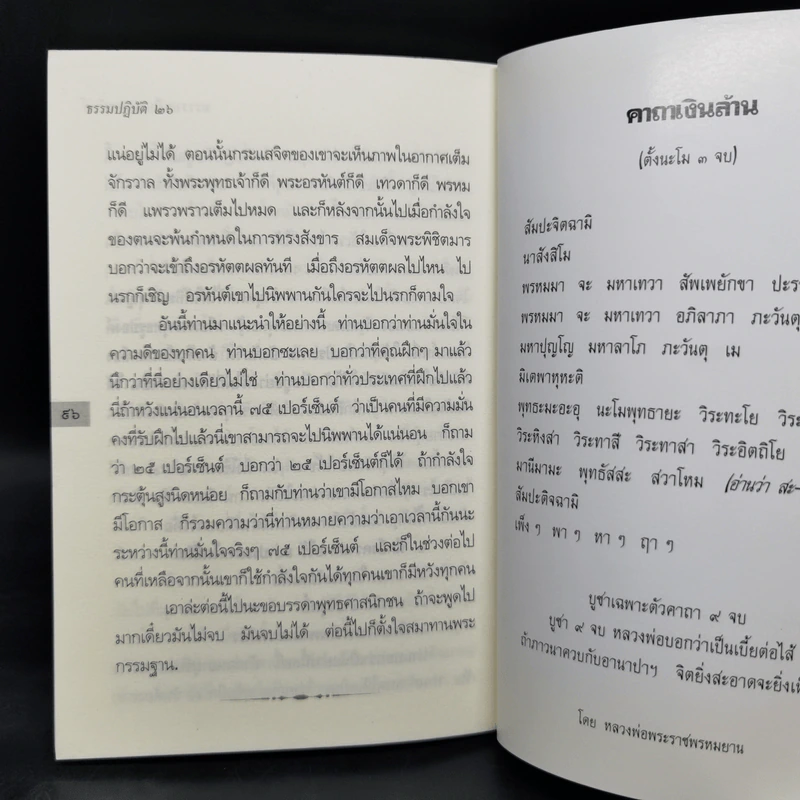 ธรรมปฏิบัติ ๒๖
แน่อยู่ไม่ได้ ตอนนั้นกระแสจิตของเขาจะเห็นภาพในอากาศเต็ม
จักรวาล ทั้งพระพุทธเจ้าก็ดี พระอรหันต์ก็ดี เทวดาก็ดี พรหม
ก็ดี แพรวพราวเต็มไปหมด และก็หลังจากนั้นไปเมื่อกำลังใจ
ของตนจะพ้นกำหนดในการทรงสังขาร สมเด็จพระพิชิตมาร
บอกว่าจะเข้าถึงอรหัตตผลทันที เมื่อถึงอรหัตตผลไปไหน ไป
นรกก็เชิญ อรหันต์เขาไปนิพพานกันใครจะไปนรกก็ตามใจ
อันนี้ท่านมาแนะนำให้อย่างนี้ ท่านบอกว่าท่านมั่นใจใน
ความดีของทุกคน ท่านบอกซะเลย บอกว่าที่คุณฝึกๆ มาแล้ว
นึกว่าที่นี่อย่างเดียวไม่ใช่ ท่านบอกว่าทั่วประเทศที่ฝึกไปแล้ว
นี่ถ้าหวังแน่นอนเวลานี้ ๗๕ เปอร์เซ็นต์ ว่าเป็นคนที่มีความมั่น
คงที่รับฝึกไปแล้วนี่เขาสามารถจะไปนิพพานได้แน่นอน ก็ถาม
ว่า ๒๕ เปอร์เซ็นต์ บอกว่า ๒๕ เปอร์เซ็นต์ก็ได้ ถ้ากำลังใจ
กระตุ้นสูงนิดหน่อย ก็ถามกับท่านว่าเขามีโอกาสไหม บอกเขา
มีโอกาส ก็รวมความว่านี่ท่านหมายความว่าเอาเวลานี้กันนะ
ระหว่างนี้ท่านมั่นใจจริงๆ ๗๕ เปอร์เซ็นต์ และก็ในช่วงต่อไป
คนที่เหลือจากนั้นเขาก็ใช้กำลังใจกันได้ทุกคนเขาก็มีหวังทุกคน
เอาล่ะต่อนี้ไปนะขอบรรดาพุทธศาสนิกชน ถ้าจะพูดไป
มากเดี๋ยวมันไม่จบ มันจบไม่ได้ ต่อนี้ไปก็ตั้งใจสมาทานพระ
กรรมฐาน.
๙๖
คาถาเงินล้าน
(ตั้งนะโม ๓ จบ)
สัมปะจิตฉามิ
นาสังสิโม
พรหมมา จะ มหาเทวา สัพเพยักขา ปะรา
พรหมมา จะ มหาเทวา อภิลาภา ภะวันตุ
มหาปุญโญ มหาลาโภ ภะวันตุ เม
มิเตพาหุหะติ
พุทธะมะอะอุ นะโมพุทธายะ วิระทะโย วิระ
วิระหิงสา วิระทาสี วิระทาสา วิระอิตถิโย
มานีมามะ พุทธัสสะ สวาโหม (อ่านว่า สะ-
สัมปะติจฉามิ
เพ็ง ๆ พา ๆ หา ๆ ฤา ๆ
บูชาเฉพาะตัวคาถา ๙ จบ
บูชา ๙ จบ หลวงพ่อบอกว่าเป็นเบี้ยต่อไส้
ถ้าภาวนาควบกับอานาปาฯ จิตยิ่งสะอาดจะยิ่ง
โดย หลวงพ่อพระราชพรหมยาน